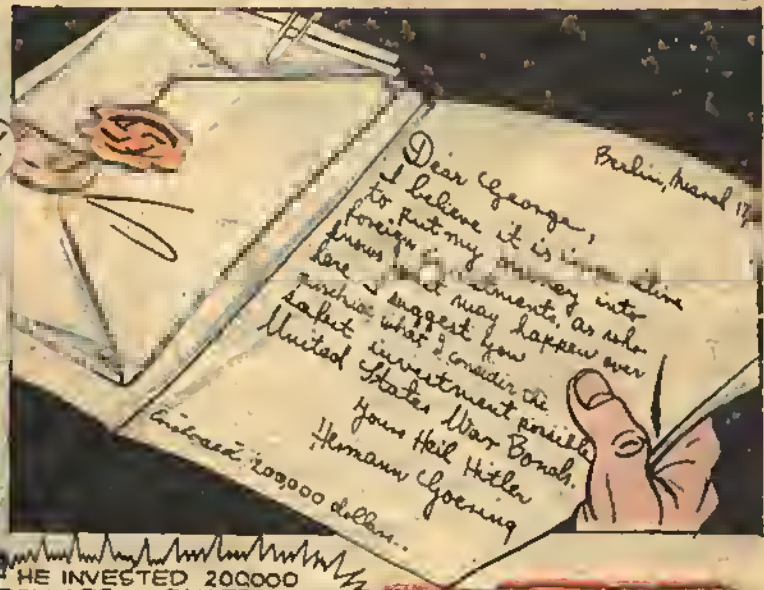 Berlin, March 17,
Dear George,
I believe it is imperative
to put my money into
foreign investments, as who
knows what may happen over
here. I suggest you
purchase what I consider the
safest investment possible
United States War Bonds.
Yours Heil Hitler
Hermann Goering
Enclosed 200,000 dollars..
HE INVESTED 200000